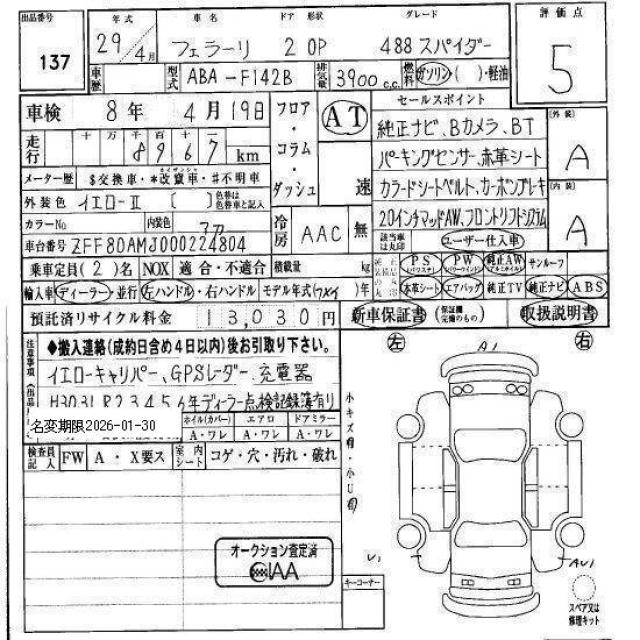 出品番号
137
年式
29年4月
車名
フェラーリ
ドア 形状
2 OP
グレード
488 スパイダー
評価点
5
車歴
型式
ABA-F142B
排気量
3900 c.c.
燃料
ガソリン( )・軽油
車検 8年 4月19日
走行
十 万 千 百 十 一
8967 km
メーター歴 $交換車・*改竄車・#不明車
外装色 イエローⅡ [ ] 色替は色替車と記入
カラーNo
内装色
アカ
車台番号 ZFF80AMJ000224804
フロア・コラム・ダッシュ
AT
速
冷房
AAC
無
セールスポイント
純正ナビ、Bカメラ、BT
パーキングセンサー、赤革シート
カラードシートベルト、カーボンブレーキ
20インチマッドAW、フロントリフトシステム
該当車は丸印
ユーザー仕入車
[外装]
A
[内装]
A
乗車定員(2)名 NOX 適合・不適合 積載量 kg
PS(パワステ) PW(パワーウインド) 純正AW(アルミホイル) サンルーフ
輸入車 ディーラー・並行 左ハンドル・右ハンドル モデル年式( )年
本革シート エアバッグ 純正TV 純正ナビ ABS
預託済リサイクル料金 13,030円
新車保証書 (保証欄完備のもの) 取扱説明書
注意事項
◆搬入連絡(成約日含め4日以内)後お引取り下さい。
イエローキャリパー、GPSレーダー、充電器
H30 31 R2 3 4 5 6年ディーラー点検記録簿有り
名変期限2026-01-30
ホイル(カバー) エアロ ドアミラー
A・ワレ A・ワレ A・ワレ
検査員記入 FW A・X要ス 室内シート コゲ・穴・汚れ・破れ
小キズ有・小U有
左
A1
右
U1
AU1
オークション査定済
CIAA
キーコーナー
スペア又は修理キット